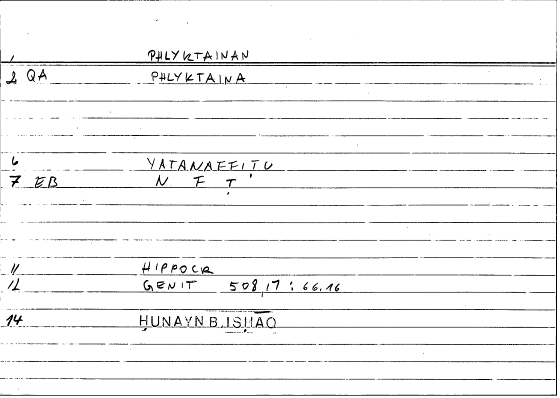 1 PHLYKTAINAN
2 QA PHLYKTAINA
6 YATANAFFIṬU
7 EB N F Ṭ
11 HIPPOCR
12 GENIT 508,17 : 66.16
14 ḤUNAYN B. ISḤĀQ